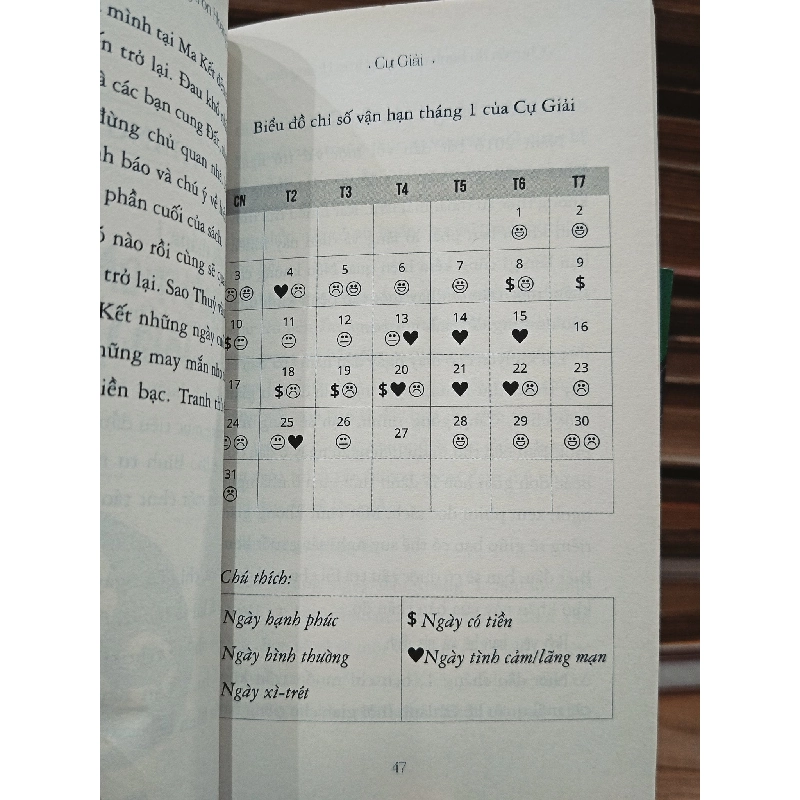 mình tại Ma Kết
trở lại. Đau khổ
các bạn cung Đất,
đừng chủ quan nhé
báo và chú ý về
phần cuối của sách
nào rồi cùng sẽ
trở lại. Sao Thuỷ
Kết những ngày
những may mắn
tiền bạc. Tranh
· Cự Giải ·
Biểu đồ chỉ số vận hạn tháng 1 của Cự Giải
CN T2 T3 T4 T5 T6 T7
1 2
3 4 5 6 7 8 9
♥ $ $
10 11 12 13 14 15 16
$ ♥ ♥ ♥
17 18 19 20 21 22 23
$ $ $♥ ♥ ♥
24 25 26 27 28 29 30
♥
31
Chú thích:
Ngày hạnh phúc $ Ngày có tiền
Ngày bình thường ♥Ngày tình cảm/lãng mạn
Ngày xì-trét
47